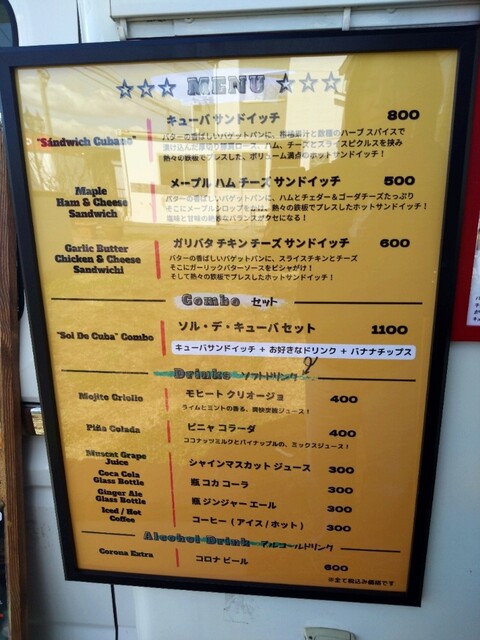 ☆☆☆ MENU ☆☆☆
"Sándwich Cubano"
キューバ サンドイッチ 800
バターの香ばしいバゲットパンに、柑橘果汁と数種のハーブ スパイスで
漬け込んだ厚切り豚肩ロース、ハム、チーズとスライスピクルスを挟み
熱々の鉄板でプレスした、ボリューム満点のホットサンドイッチ！
Maple
Ham & Cheese
Sandwich
メープル ハム チーズ サンドイッチ 500
バターの香ばしいバゲットパンに、ハムとチェダー＆ゴーダチーズたっぷり
そこにメープルシロップをかけ、熱々の鉄板でプレスしたホットサンドイッチ！
塩味と甘味の絶妙なバランスがクセになる！
Garlic Butter
Chicken & Cheese
Sandwichi
ガリバタ チキン チーズ サンドイッチ 600
バターの香ばしいバゲットパンに、スライスチキンとチーズ
そこにガーリックバターソースをビシャがけ！
そして熱々の鉄板でプレスしたホットサンドイッチ！
Combo セット
"Sol De Cuba" Combo
ソル・デ・キューバ セット 1100
キューバサンドイッチ + お好きなドリンク + バナナチップス
Drinks ソフトドリンク
Mojito Criollo
モヒート クリオージョ 400
ライムとミントの香る、爽快炭酸ジュース！
Piña Colada
ピニャ コラーダ 400
ココナッツミルクとパイナップルの、ミックスジュース！
Muscat Grape
Juice
シャインマスカット ジュース 300
Coca Cola
Glass Bottle
瓶 コカ コーラ 300
Ginger Ale
Glass Bottle
瓶 ジンジャー エール 300
Iced / Hot
Coffee
コーヒー ( アイス / ホット ) 300
Alcohol Drink アルコールドリンク
Corona Extra
コロナ ビール 600
※全て税込み価格です